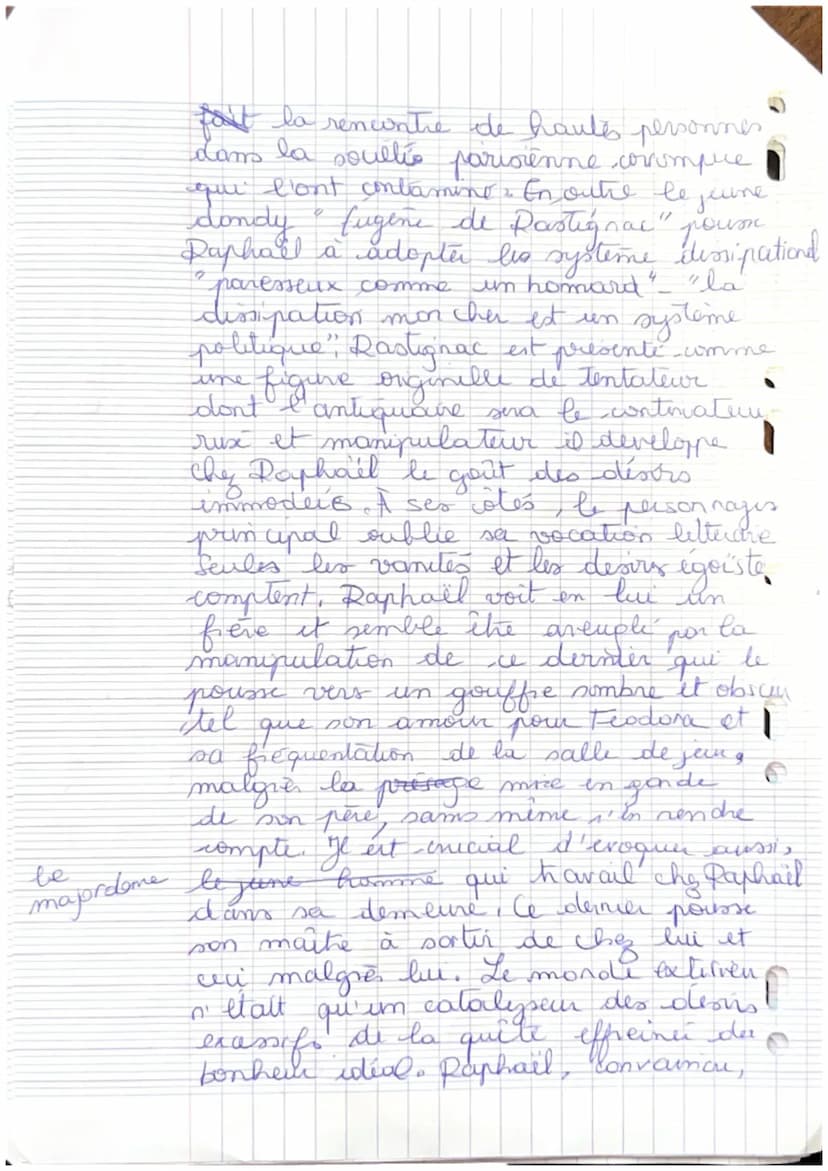 fait la rencontre de hautes personnes
dans la société parisienne corrompue
qui l'ont contaminé. En outre le jeune
dondy "Eugène de Rastignac" pousse
Raphaël à adopter les système dissipationel
"paresseux comme un homard" - "la
dissipation mon cher est un système
politique"; Rastignac est présenté comme
une figure originelle de tentateur
dont l'antiquaire sera le continuateur
rusé et manipulateur il développe
chez Raphaël le goût des désirs
immodérés. À ses côtés, le personnages
principal oublie sa vocation littéraire
Seules les vanités et les désirs égoïste
comptent. Raphaël voit en lui un
frère et semble être aveuglé par la
manipulation de ce dernier qui le
pousse vers un gouffre sombre et obscur
tel que son amour pour Feodora et
sa fréquentation de la salle de jeux,
malgrès la présage mise en garde
de son père, sans même s'en rendre
compte. Il est crucial d'évoquer aussi,
le majordome le jeune homme qui travail chez Raphaël
dans sa demeure. Ce dernier pousse
son maître à sortir de chez lui et
ceci malgrès lui. Le monde extérieu
n'était qu'un catalyseur des désirs
excessifs de la quête effreinée du
bonheur idéal. Raphaël, convaincu,